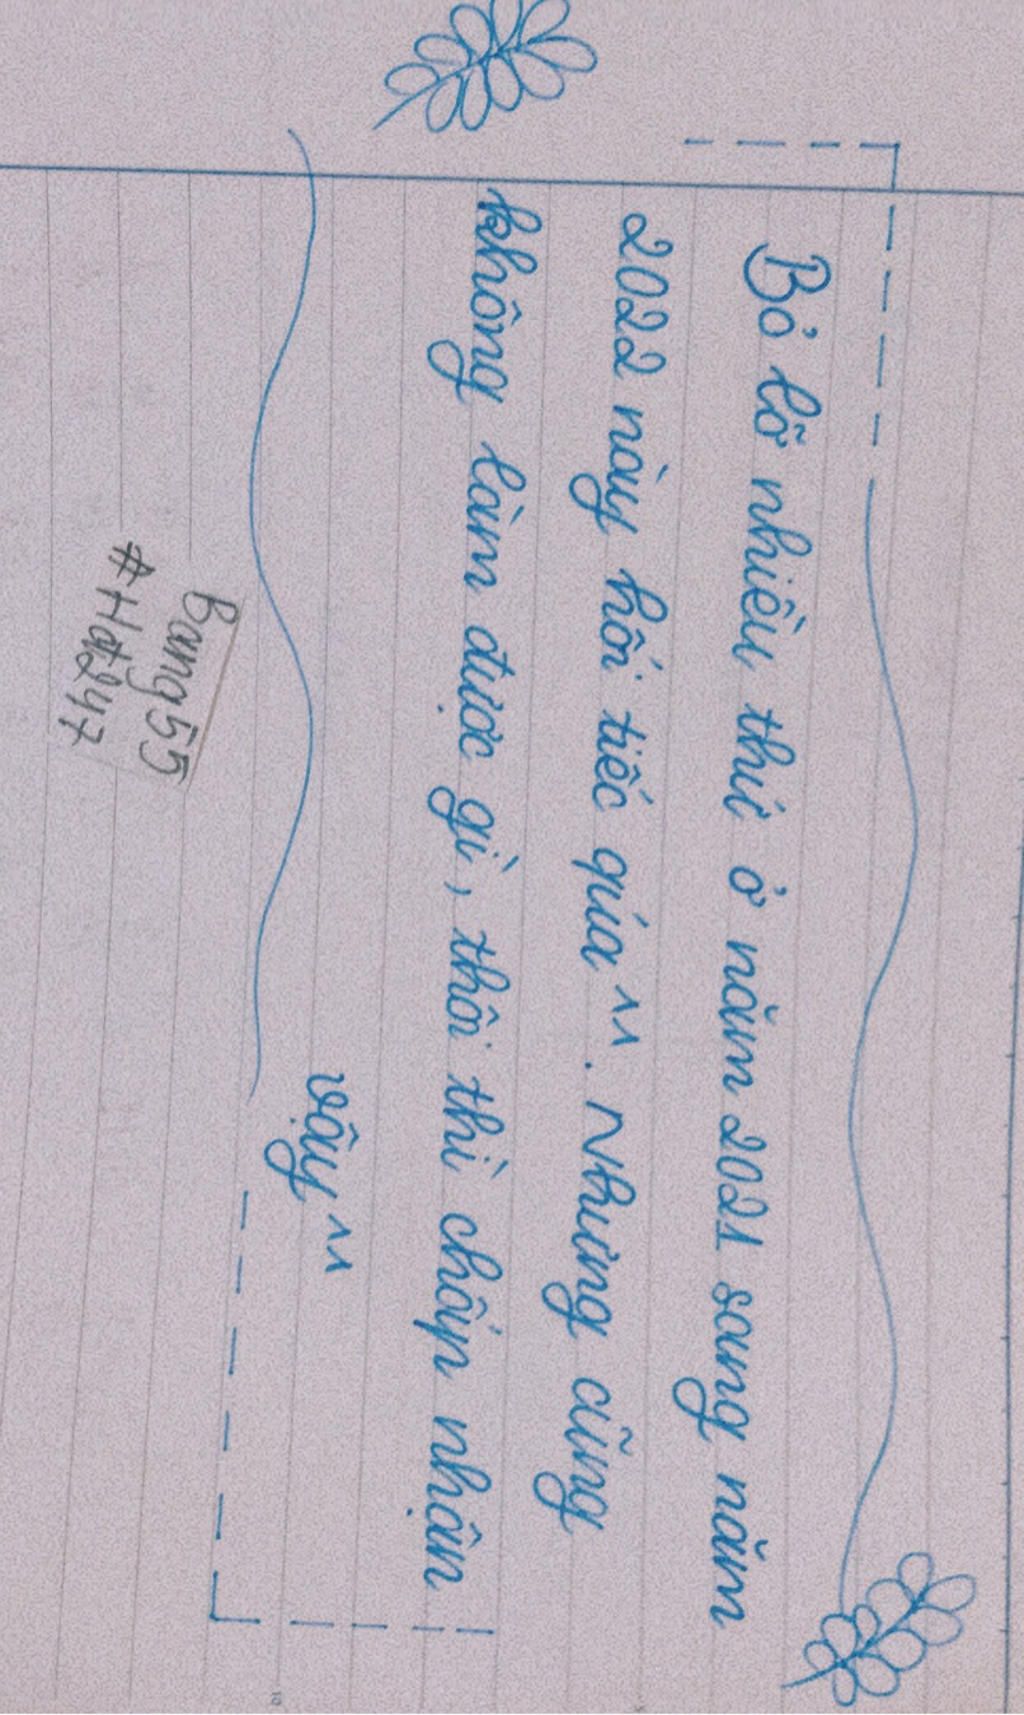 Bỏ lỡ nhiều thứ ở năm 2021 sang năm
2022 này hối tiếc qúa ^^. Nhưng cũng
không làm được gì, thôi thì chấp nhận
vậy ^^
Bang55
#Hat247